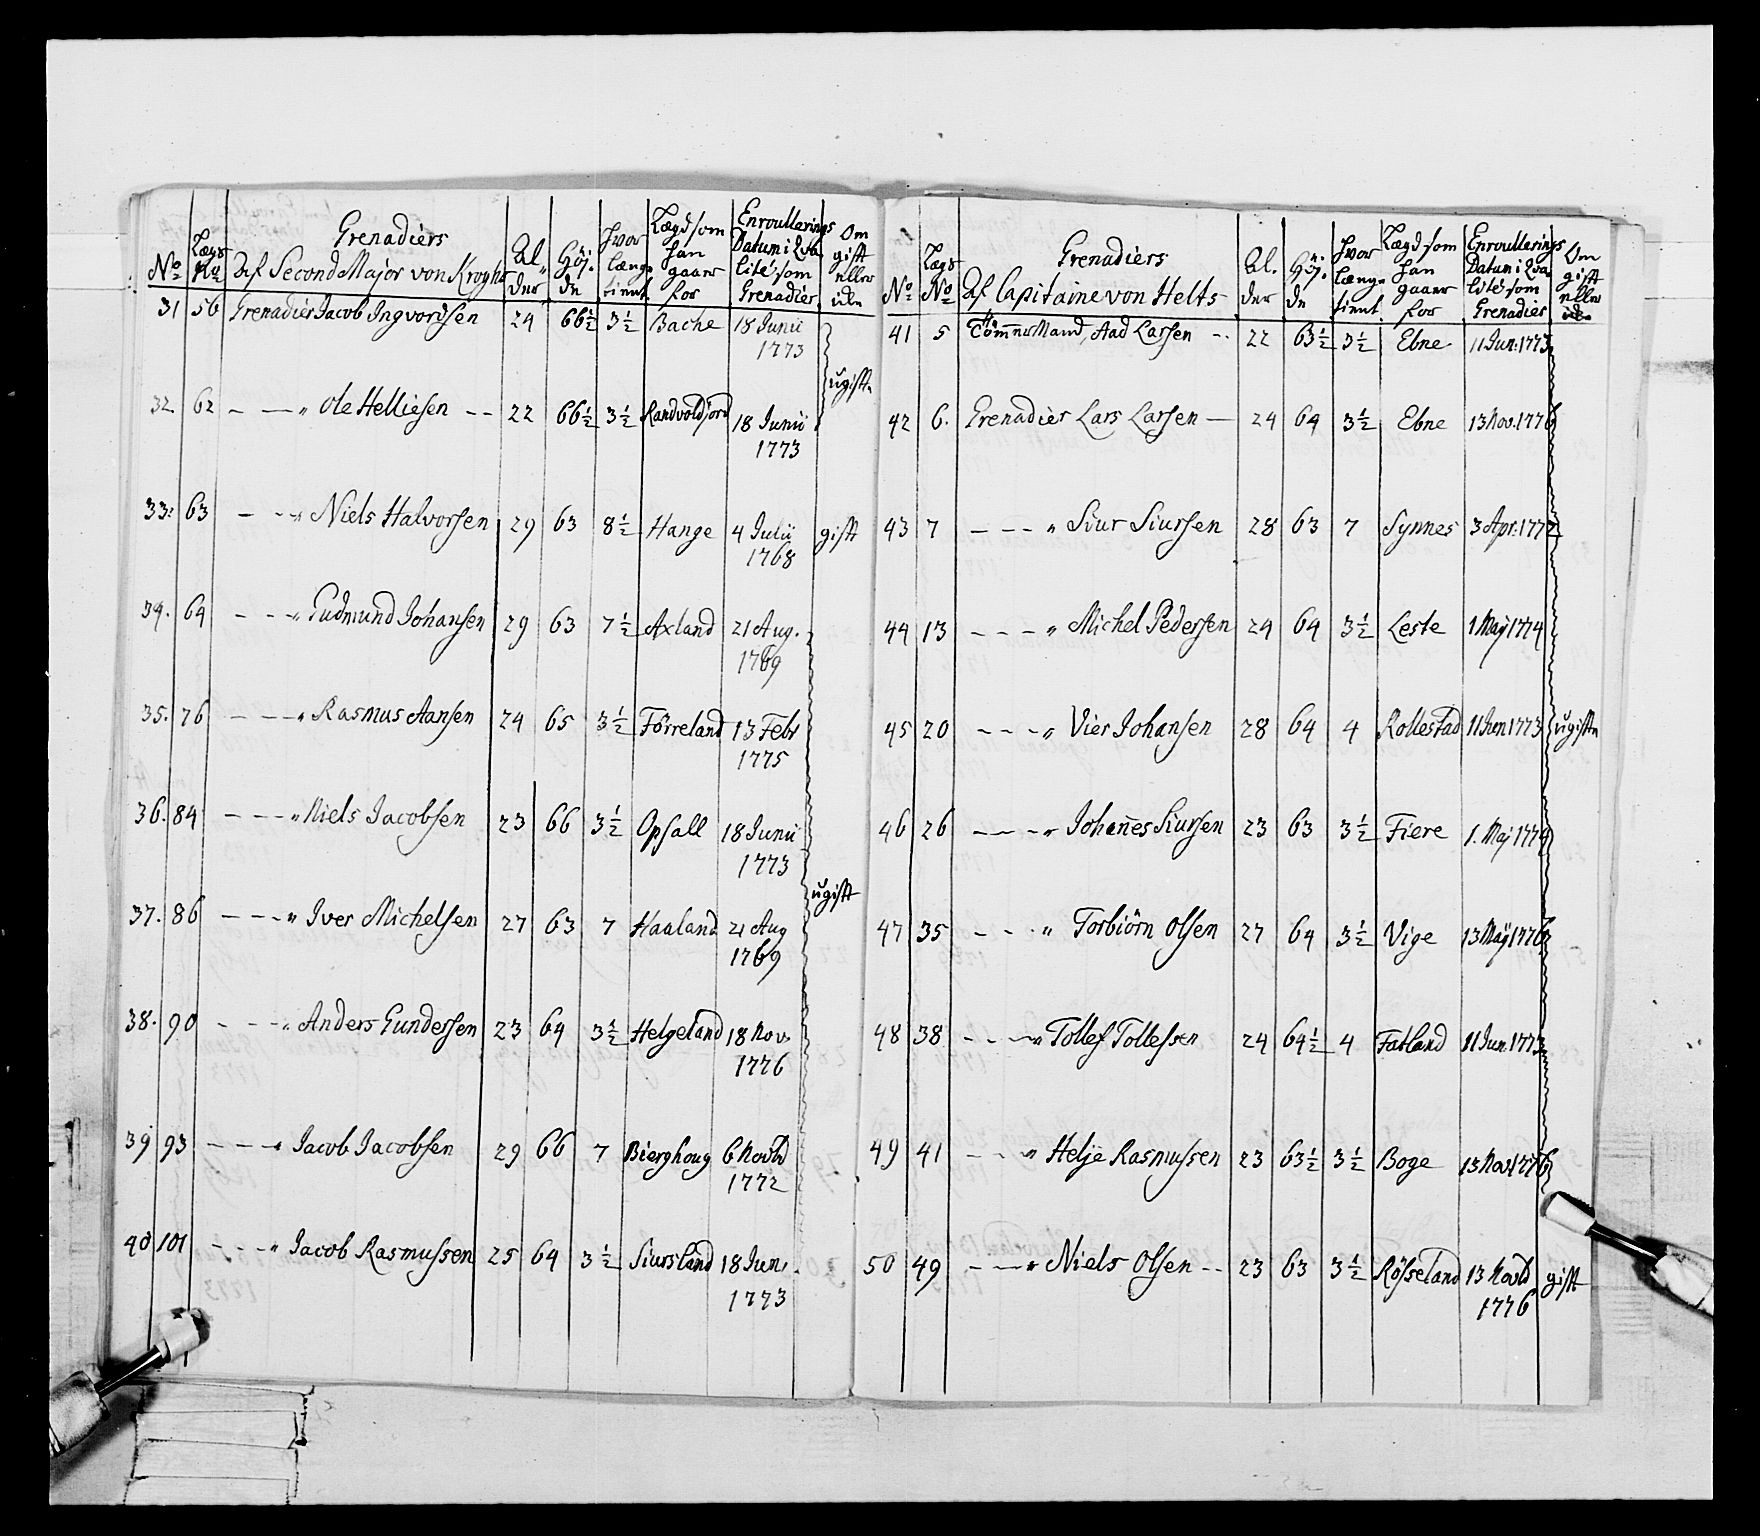 Grenadiers
No Lægs No Af Second Major von Kroghs Alder Höjde hvor længe tient Lægd som han gaaer for Enroullerings Datum i Qvalité som Grenadier Om gift eller ide
31 56 Grenadier Jacob Ingvordsen 24 66½ 3½ Bache 18 Junii
1773
ugifte
32 62 — — „ Ole Helliesen -- 22 66½ 3½ Randvoldjord 18 Junii
1773
33. 63 — - - „ Niels Halvorsen 29 63 8½ Hange 4 Julii gift
1768
34. 64 — - - „ Gudmund Johansen 29 63 7½ Axland 21 Aug.
1769
35. 76 — - - „ Rasmus Aansen 24 65 3½ Förreland 13 Febr
1775
36. 84 — - - „ Niels Jacobsen 23 66 3½ Opsall 18 Junii
1773
ugift
37. 86 — - - „ Iver Michelsen 27 63 7 Haaland 21 Aug
1769
38. 90 - - - „ Anders Gundersen 23 64 3½ Helgeland 18 Nov.
1776
39 93 — - - „ Jacob Jacobsen 29 66 7 Bierghoug 6 Novbr
1772
40 101 - - - „ Jacob Rasmussen 25 64 3½ Siursland 18 Jun.
1773
Grenadiers
No Lægs No Af Capitaine von Helts Alder Höjde hvor længe tient Lægd som han gaaer for Enroullerings Datum i Qvalité som Grenadier Om gift eller ide
41 5 Tömmermand, Aad Larsen -- 22 63½ 3½ Ebne 11 Jun: 1773
42 6. Grenadier Lars Larsen — 24 64 3½ Ebne 13 Nov. 1776
43 7 — - - „ Siur Siursen 28 63 7 Synnes 3 Apr: 1772
44 13 - - - „ Michel Pedersen 24 64 3½ Leste 1 Maÿ 1774
45 20 - - - „ Vier Johansen 28 64 4 Rollestad 11 Jun 1773 ugifte
46 26 — - - „ Johannes Siursen 23 63 3½ Fiere 1. Maj 1774
47 35 - - - „ Torbiörn Olsen 27 64 3½ Vige 13 Maÿ 1776
48 38 - - — „ Tollef Tollefsen 24 64½ 4 Fatland 11 Jun. 1773
49 41 - - - „ Helje Rasmussen 23 63½ 3½ Boge 13 Nov 1776
50 49 - - — „ Niels Olsen -- 23 63 3½ Rösseland 13 Novbr gift
1776